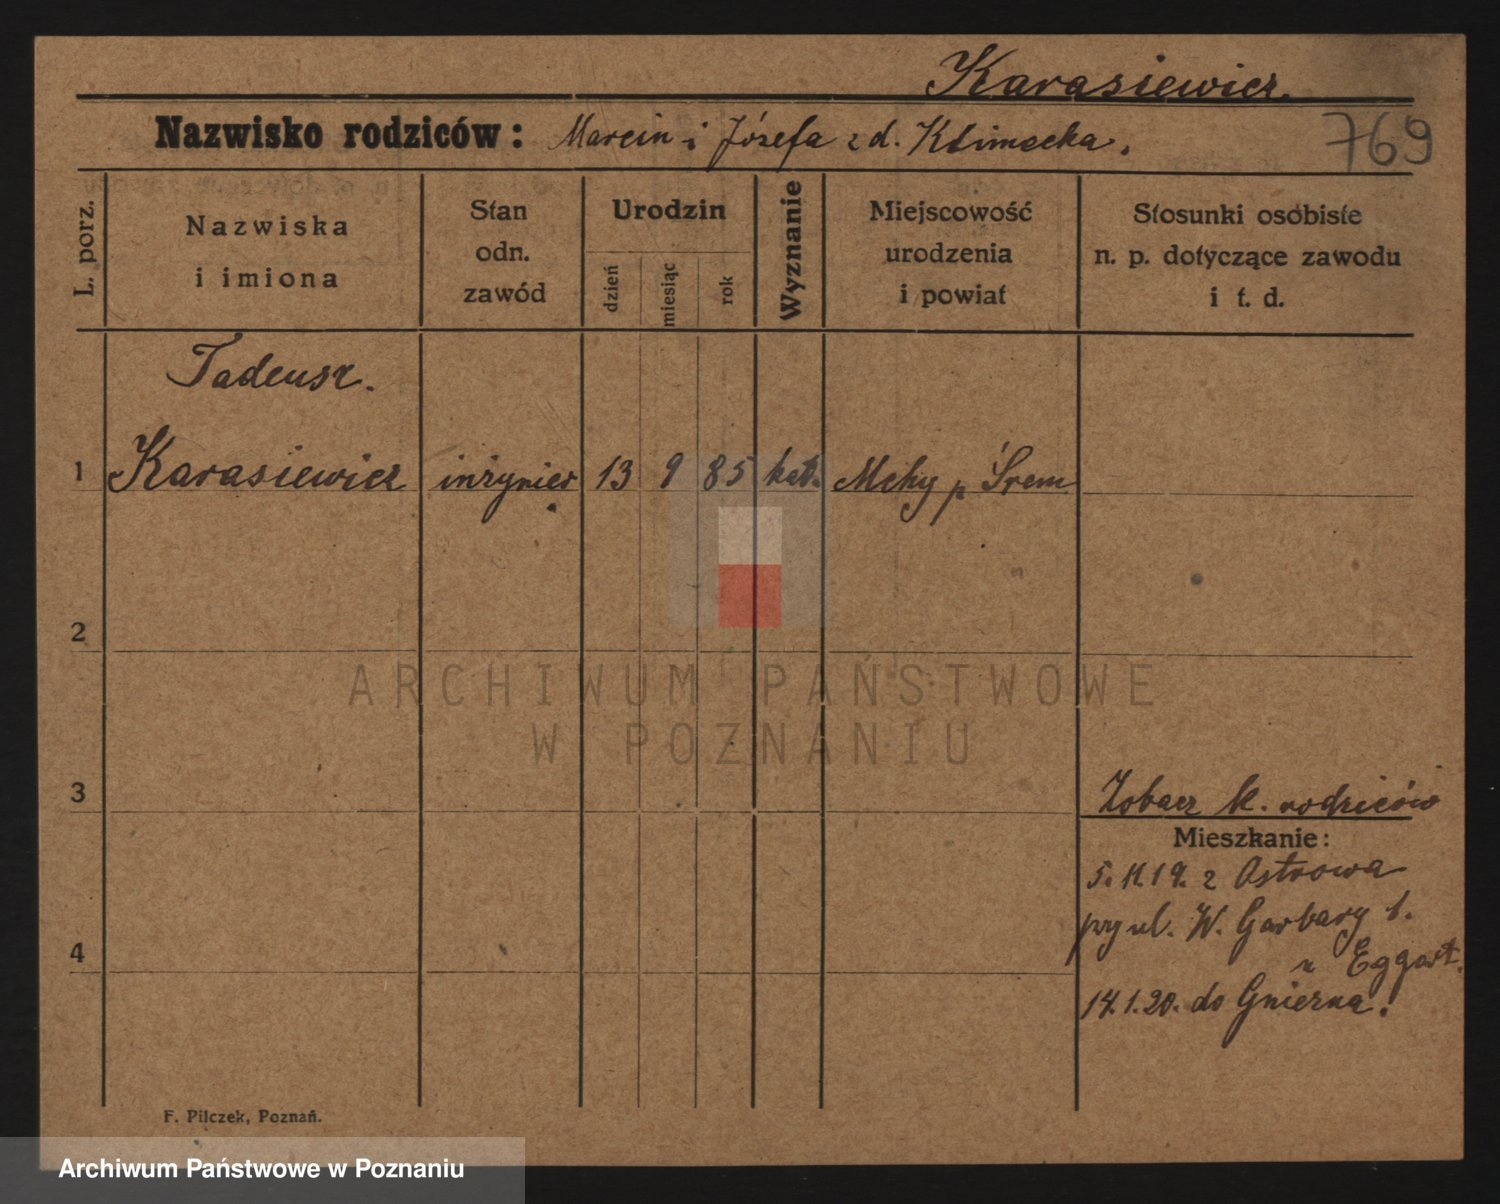 Karasiewicz.
Nazwisko rodziców: Marcin i Józefa z d. Klimecka.
769
L. porz.
Nazwiska
i imiona
Stan
odn.
zawód
Urodzin
dzień
miesiąc
rok
Wyznanie
Miejscowość
urodzenia
i powiat
Stosunki osobiste
n. p. dotyczące zawodu
i t. d.
Tadeusz.
1 Karasiewicz inżynier 13 9 85 kat. Mchy p Śrem
2
ARCHIWUM PAŃSTWOWE
W POZNANIU
3
Zobacz k. rodziców
Mieszkanie:
5.11.19. z Ostrowa
przy ul. W. Garbary 1.
4
u Eggert.
14.1.20. do Gniezna.
F. Pilczek, Poznań.
Archiwum Państwowe w Poznaniu